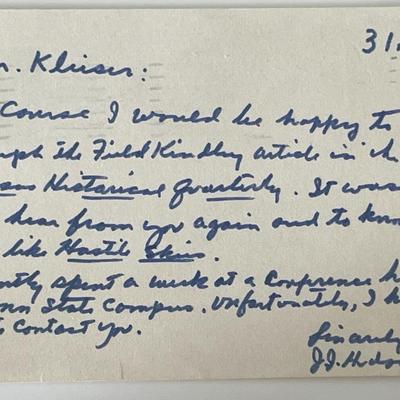 31
r. Klieser:
Course I would be happy to
graph the Field Kindley article in the
sas Historical Quarterly. It was
hear from you again and to know
like Hostile Skies.
ntly spent a week at a Conference h
nn State Campus. Unfortunately, I
to contact you.
Sincerely
J.J. Hudso